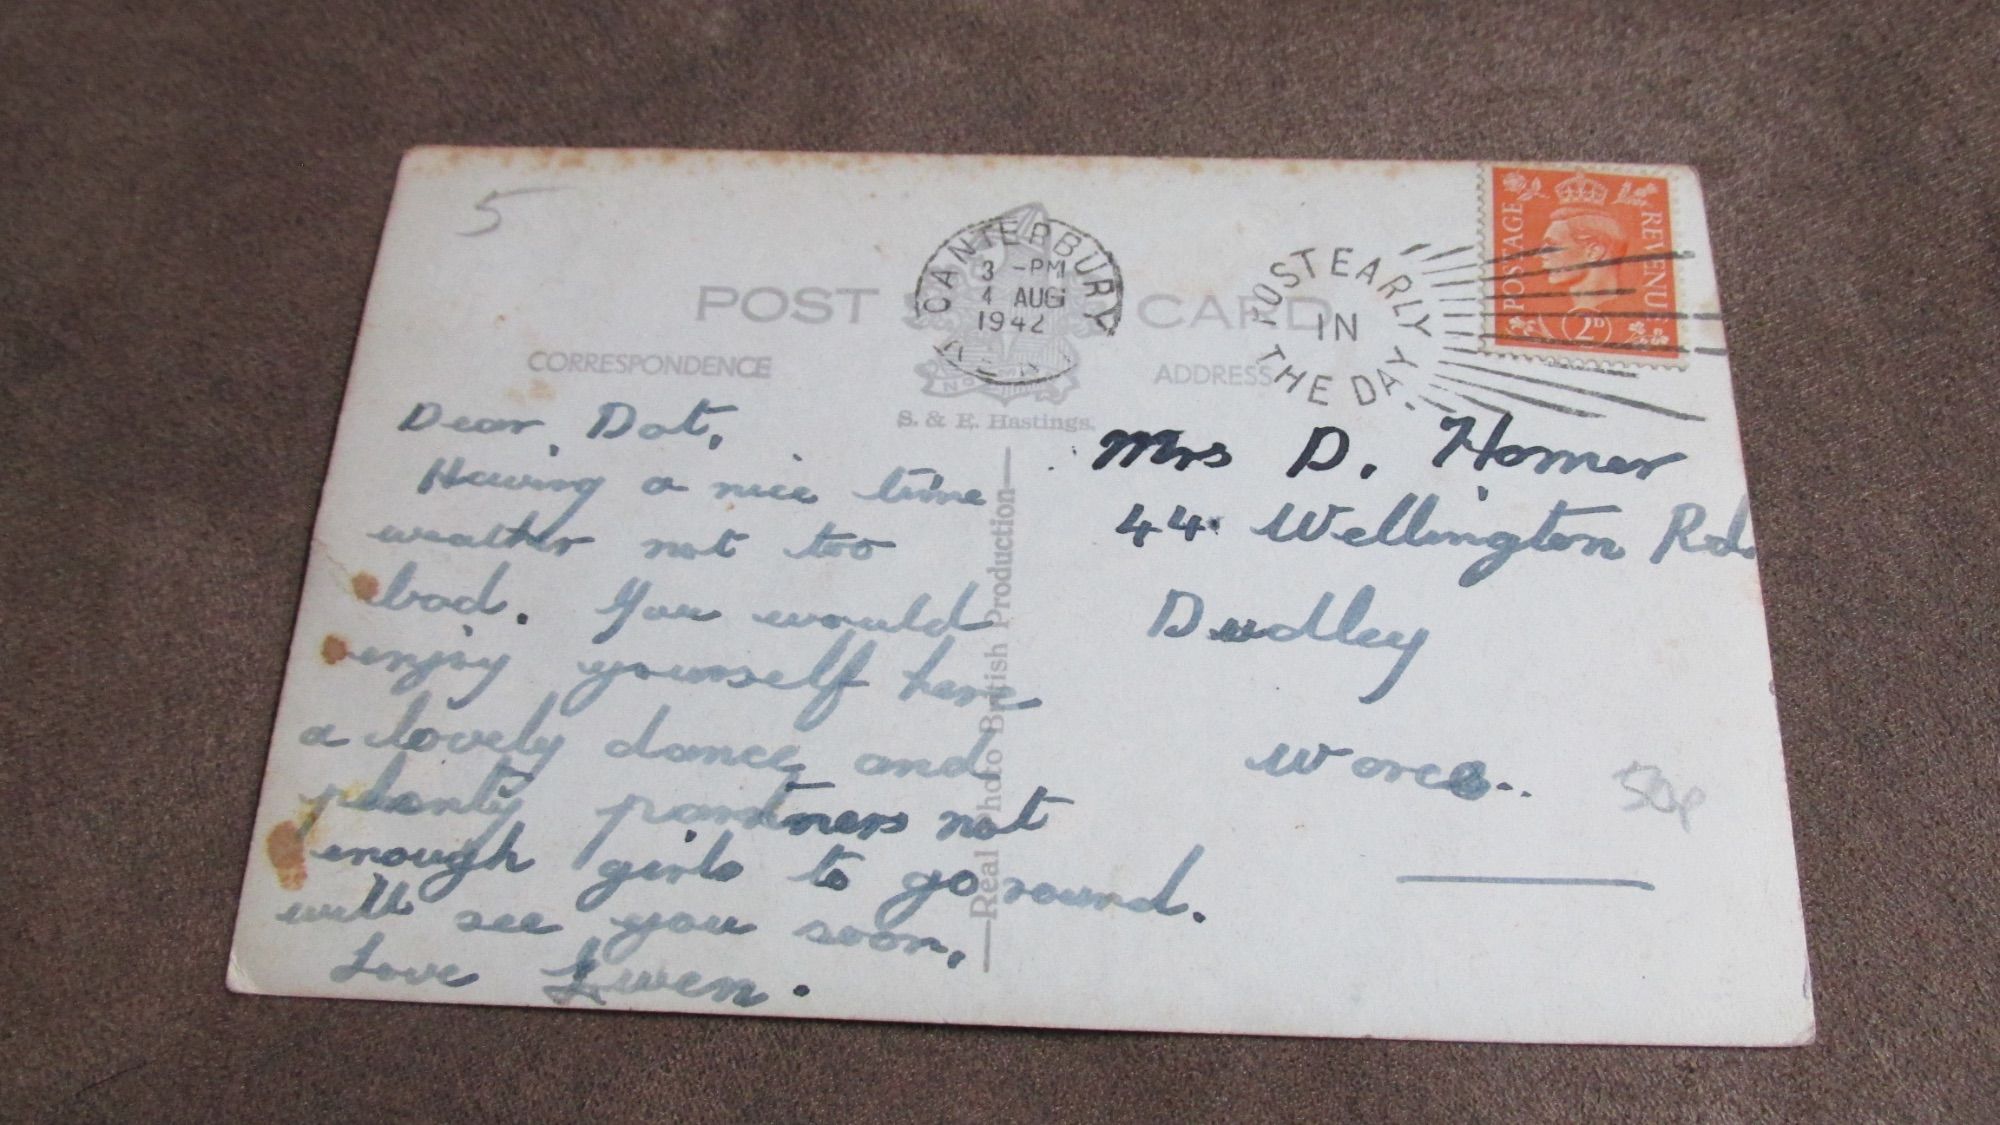 5
CANTERBURY
3 - PM
4 AUG
1942
POST EARLY
IN
THE DAY.
POSTAGE
REVENUE
2D
POST CARD
CORRESPONDENCE
ADDRESS
S. & E. Hastings.
Real Photo British Production
Dear Dot,
Having a nice time
weather not too
bad. You would
enjoy yourself here
a lovely dance, and
plenty partners not
enough girls to go round.
will see you soon,
Love Gwen.
Mrs D. Homer
44 Wellington Rd.
Dudley
Worcs..
50p